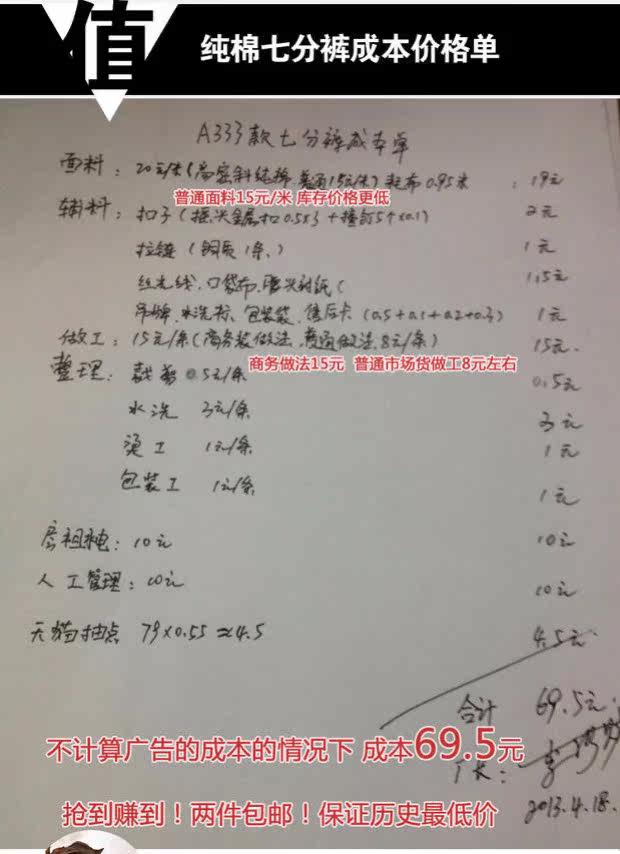 值 纯棉七分裤成本价格单
A333款七分裤成本单
面料：20元/米(高密斜纯棉 普通15元/米) 耗布0.95米 ：19元
普通面料15元/米 库存价格更低
辅料：扣子（ 金属扣0.5x3+撞钉5个x0.1） 2元
拉链（铜质1条，） 1元
丝光线、口袋布、 衬纸（ 1.5元
吊牌、水洗标、包装袋、售后卡（0.5+0.1+0.2+0.3） 1元
做工：15元/条(商务装做法，普通做法8元/条） 15元.
商务做法15元 普通市场货做工8元左右
整理：裁剪0.5元/条 0.5元
水洗 3元/条 3元
烫工 1元/条 1元
包装工 1元/条 1元
房租水电：10元 10元
人工管理：10元 10元
天猫抽点 79x0.55≈4.5 4.5元
合计 69.5元.
不计算广告的成本的情况下 成本69.5元
厂长：李
抢到赚到！两件包邮！保证历史最低价
2013.4.18.